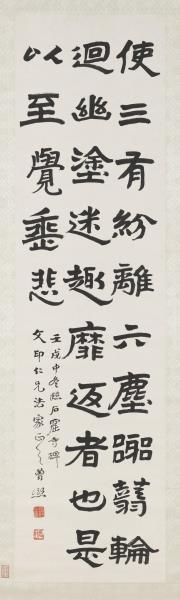 使三有紛離六塵蹦蘙輪
迴幽塗迷趣靡返者也是
以至覺垂悲
壬戌中冬臨石窟寺碑
文印仁兄法家正之 曾熙